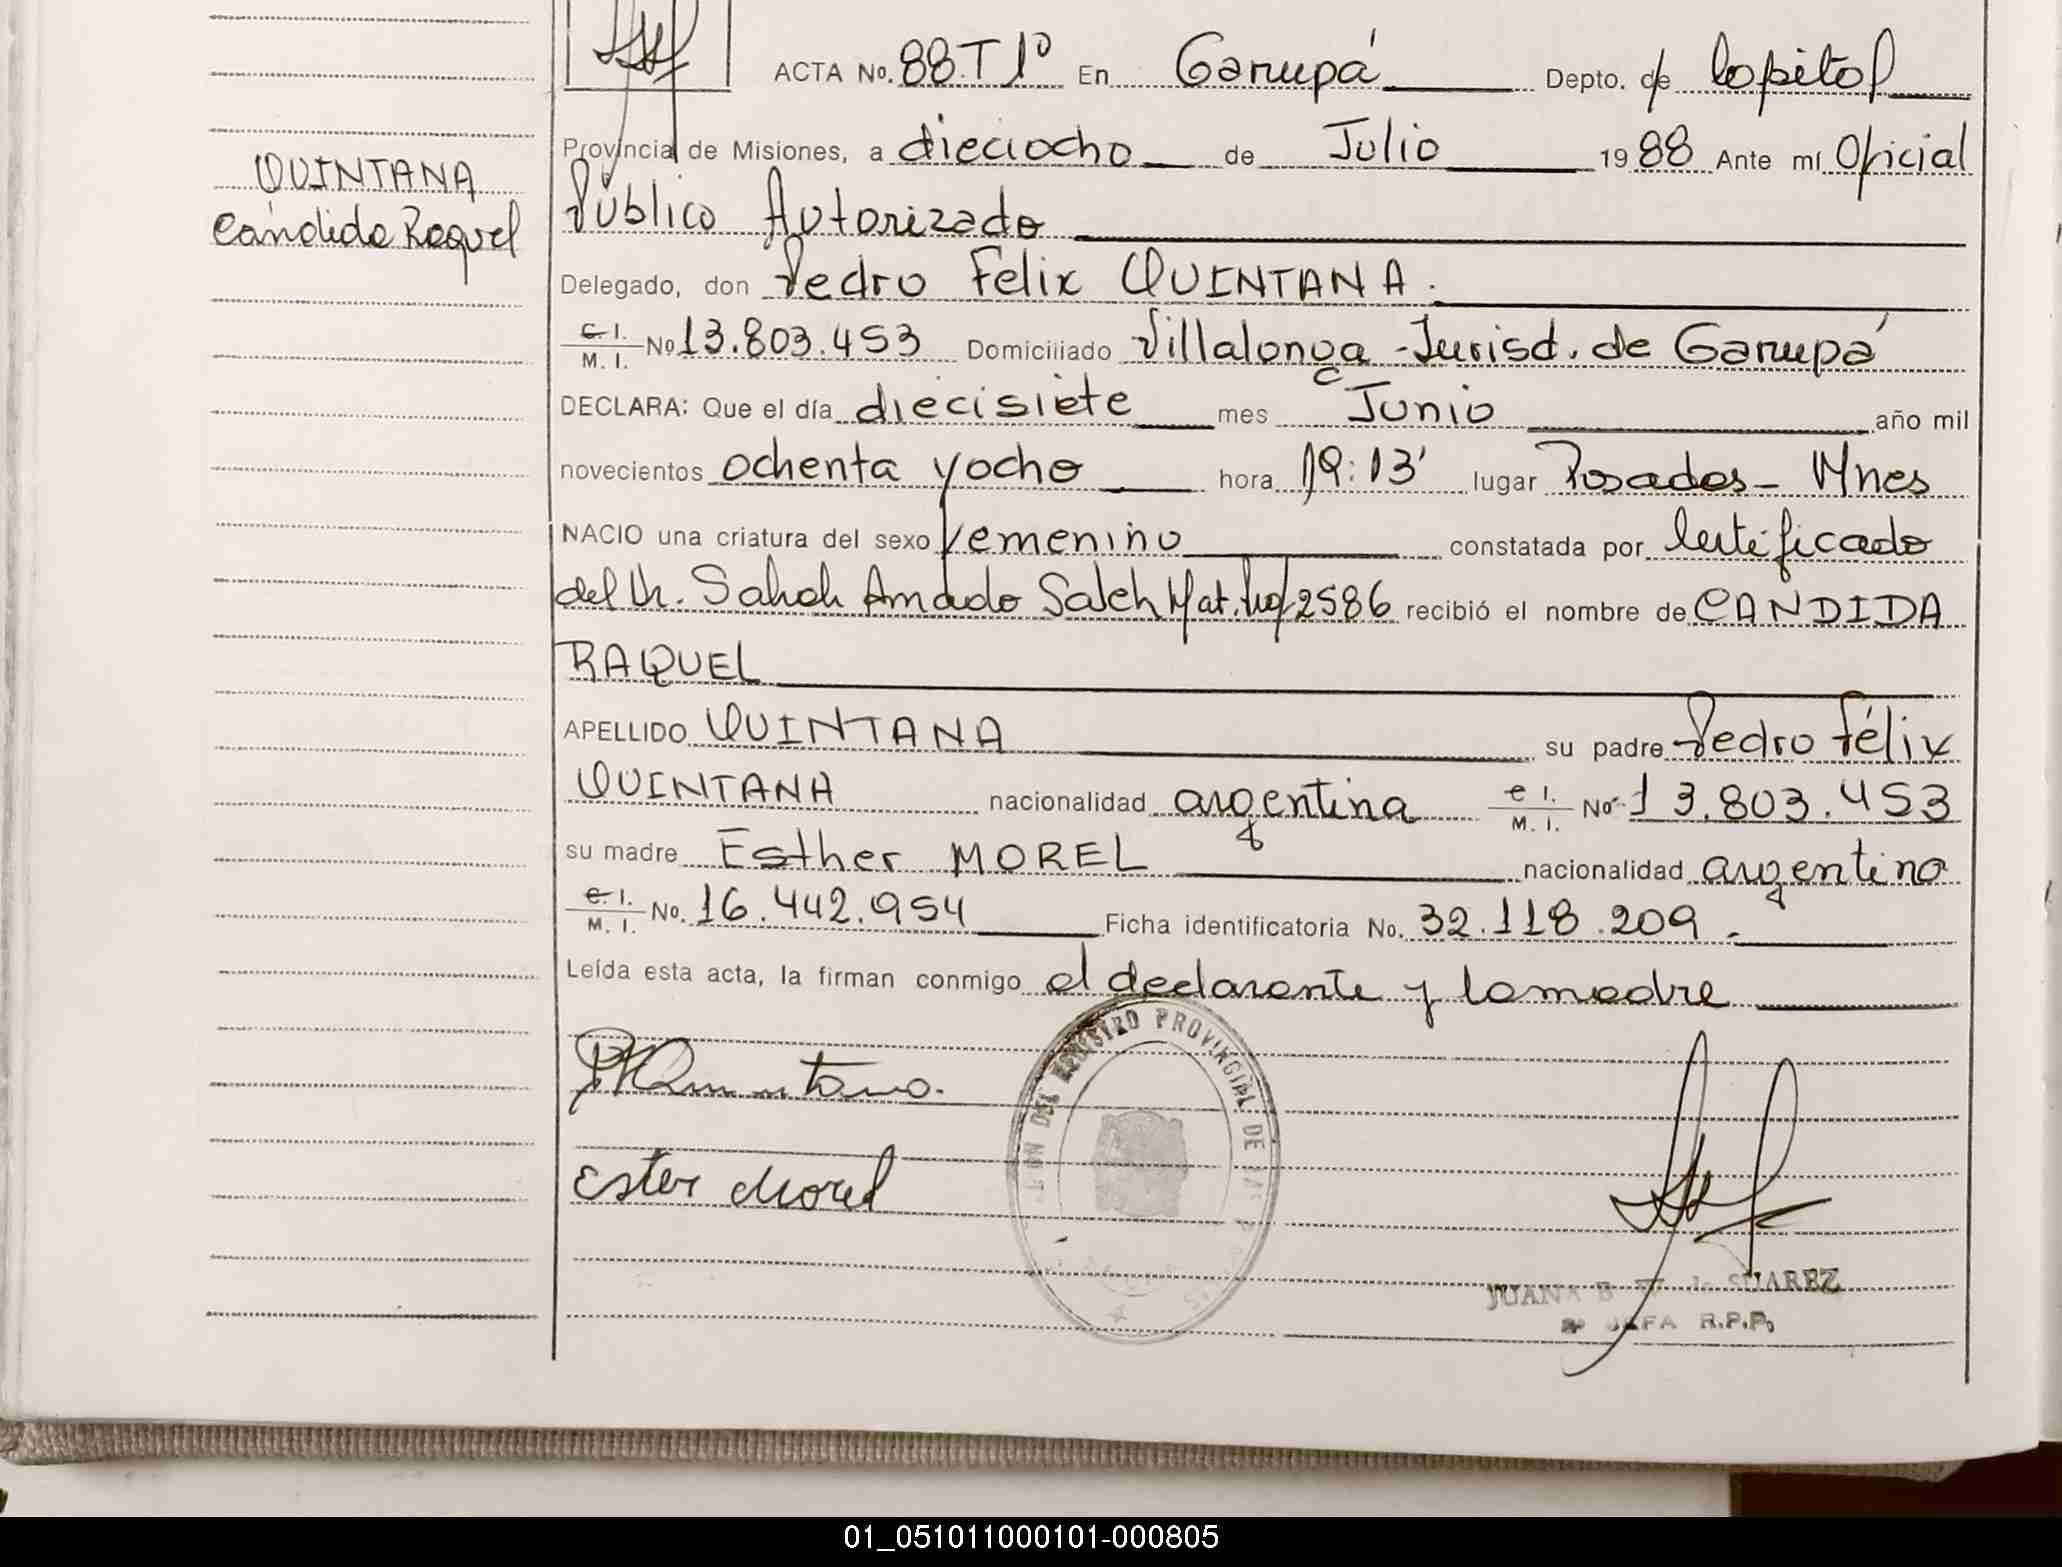 ACTA No. 88.T 1º En Garupá Depto. de Capital
Provincia de Misiones, a dieciocho de Julio 1988 Ante mí Oficial
Público Autorizado
QUINTANA
Cándida Raquel
Delegado, don Pedro Felix QUINTANA.
C. I. M. I. No 13.803.453 Domiciliado Villalonga - Jurisd. de Garupá
DECLARA: Que el día diecisiete mes Junio año mil
novecientos ochenta y ocho hora 19:13' lugar Posadas - Mnes
NACIO una criatura del sexo femenino constatada por Certificado
del Dr. Amado Saleh Mat. 2586 recibió el nombre de CANDIDA
RAQUEL
APELLIDO QUINTANA su padre Pedro Félix
QUINTANA nacionalidad argentina C. I. M. I. No 13.803.453
su madre Esther MOREL nacionalidad argentina
C. I. M. I. No. 16.442.954 Ficha identificatoria No. 32.118.209.-
Leída esta acta, la firman conmigo el declarante y la madre
Quintana.
Ester Morel
DEL REGISTRO PROVINCIAL DE LAS
JUANA B. de SUAREZ
JEFA R.P.P.
01_051011000101-000805